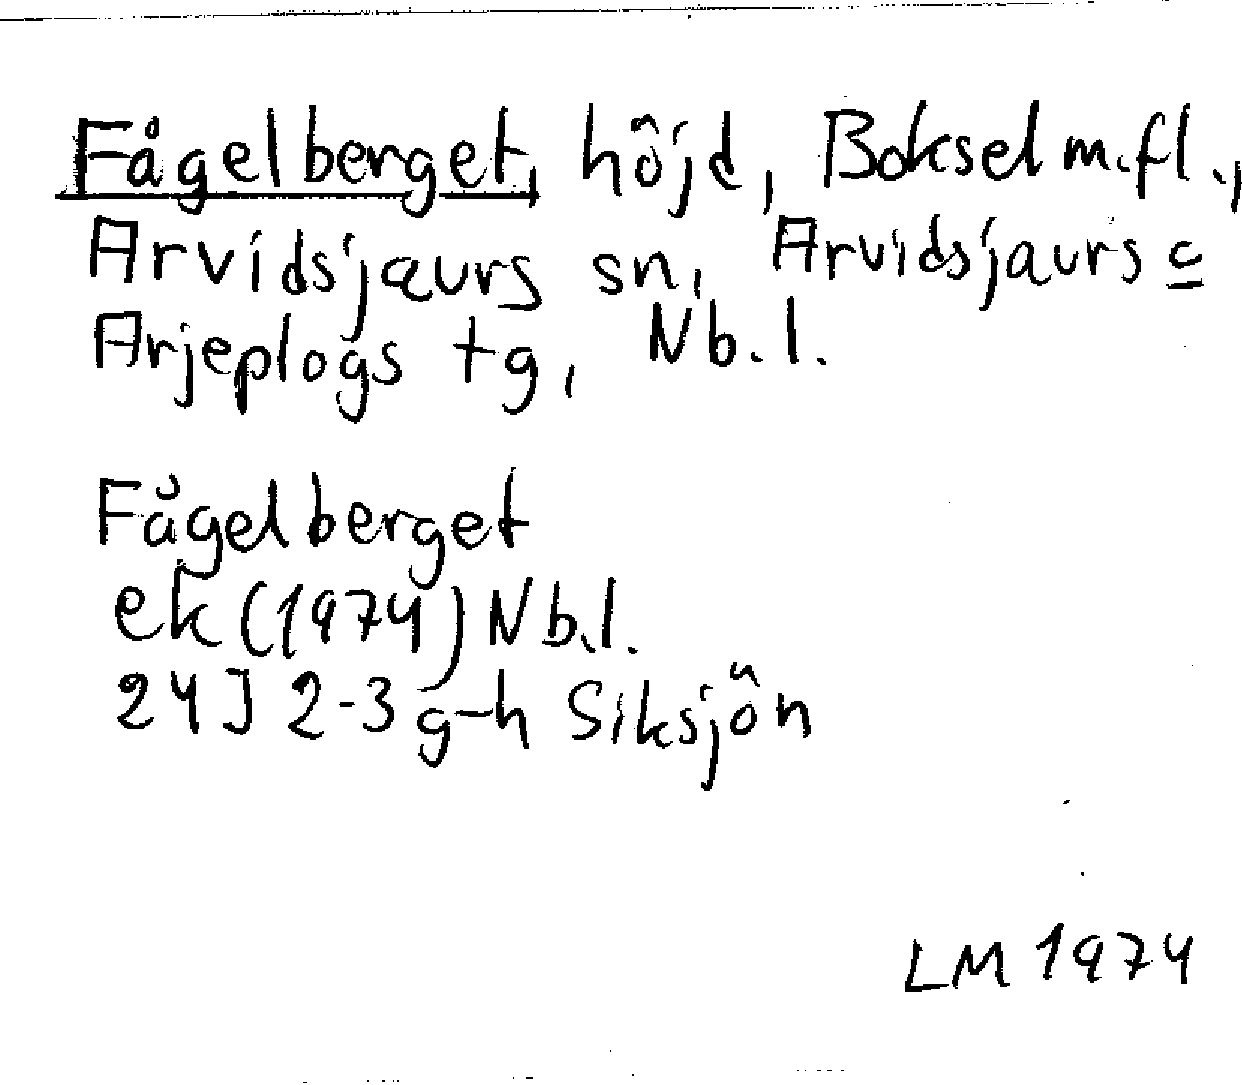 Fågelberget, höjd, Boksel m.fl.,
Arvidsjaurs sn, Arvidsjaurs o
Arjeplogs tg, Nb.l.
Fågelberget
ek (1974) Nb.l.
24J 2-3 g-h Siksjön
LM 1974